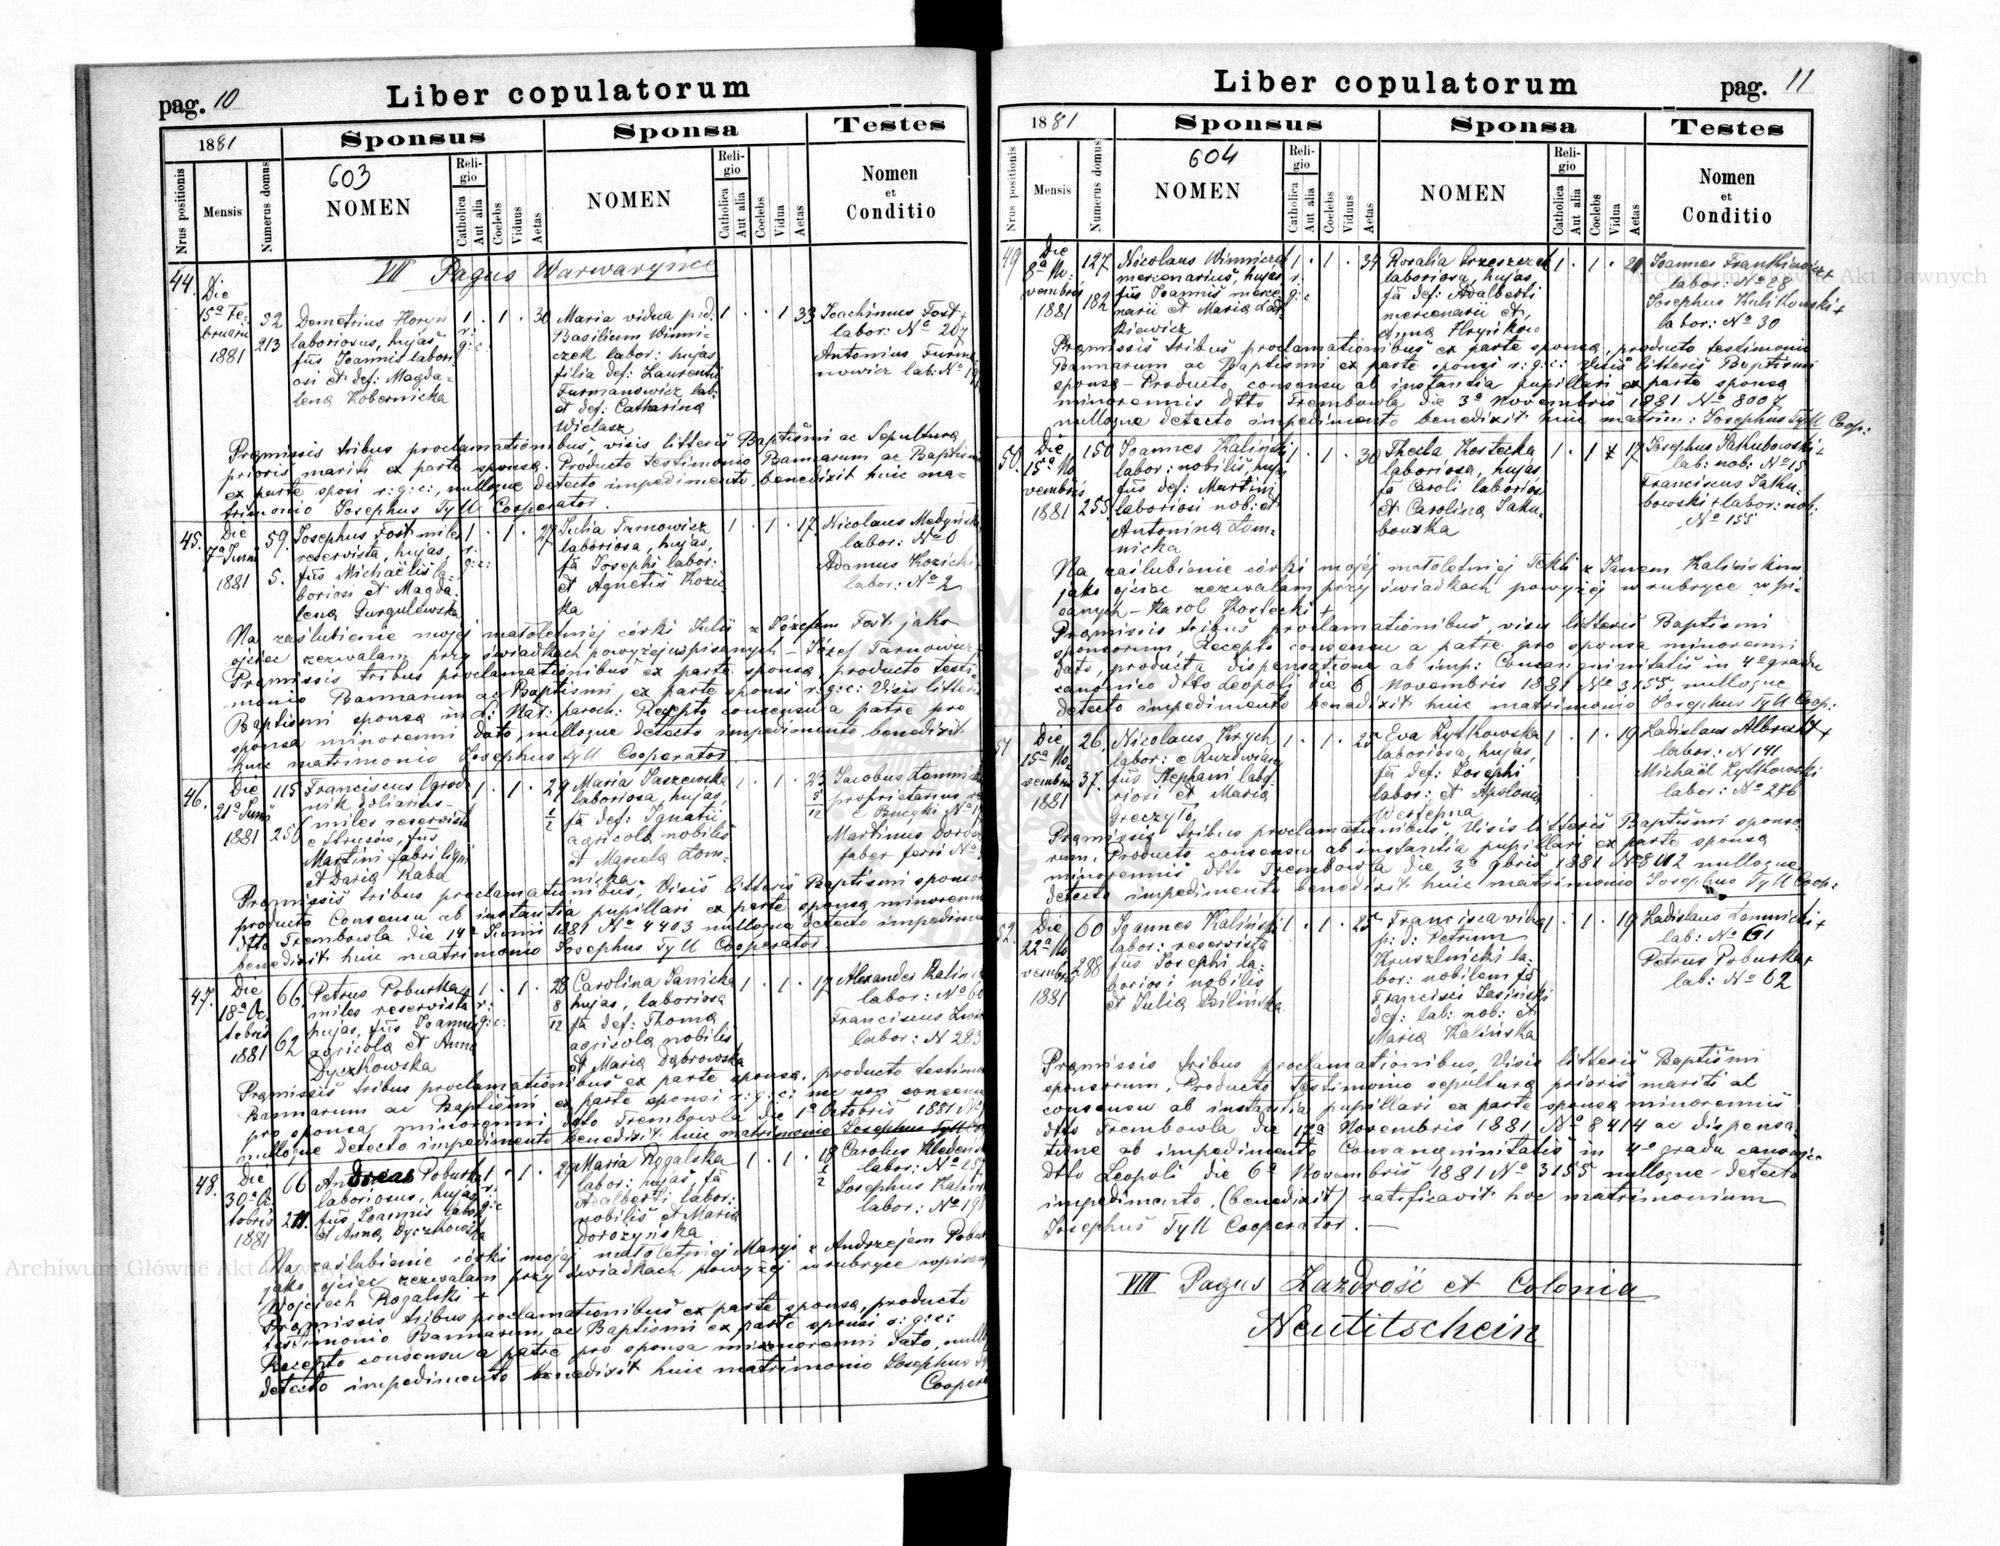 pag. 10
Liber copulatorum
1881
Sponsus
Sponsa
Testes
Nrus positionis
Mensis
Numerus domus
603
NOMEN
Religio
Catholica
Aut alia
Coelebs
Viduus
Aetas
NOMEN
Religio
Catholica
Aut alia
Coelebs
Vidua
Aetas
Nomen
et
Conditio
VII Pagus Warwarynce
44.
Die
15a Februarii
1881
52
213
Demetrius Horyn
laboriosus, hujas
fůs Joannis labori
osi et def: Magda-
lena Kobernicka
1 . 1 . 30
r:
g: c:
Maria vidua p: d:
Basilium Winni-
czek labor: hujas,
filia def: Laurentii
Furmanowicz lab:
et def: Catharina
Wielasz
1 . . 1 33
Joachimus Fost +
labor: No 207
Antonius Furma
nowicz lab: No
Pramissis tribus proclamationibus visis litteris Baptismi ac Sepultura
prioris mariti ex parte sponsa. Producto testimonio Bannarum ac Baptismi
ex parte sposi r: g: c:, nulloque detecto impedimento, benedixit huic ma-
trimonio Josephus Tyll Cooperator.
45.
Die
7a Junii
1881
59.
5.
Josephus Fost miles
reservista, hujas,
fůs Michaëlis la-
boriosi et Magda-
lena Gurgulewska
1 . 1 . 27
r:
g: c:
Julia Tarnowicz
laboriosa, hujas,
fa Josephi labor:
et Agnetis Kozic
ka
1 . 1 . 17
Nicolaus Medyński
labor: No 0
Adamus Kozicki
labor: No 2
Na zaślubienie mojej małoletniej córki Julii z Józefem Fost jako
ojciec zezwalam przy świadkach powyżej wpisanych - Józef Tarnowicz
Pramissis tribus proclamationibus ex parte sponsa, producto testi
monio Bannarum ac Baptismi, ex parte sponsi r: g: c: Visis litteris
Baptismi sponsa in L: Nat: paroch: Recepto consensu a patre pro
sponsa minorenni dato, nulloque detecto impedimento benedixit
huic matrimonio Josephus Tyll Cooperator
46.
Die
21a Junii
1881
115
250
Franciscus Ogrod
nik doliarius -
miles reservista
e Strusów, fůs
Martini fabri ligni
et Daria Kaba
1 . 1 . 29
1/2
Maria Jaszewska
laboriosa, hujas,
fa def: Ignatii
agricola nobilis
et Marcela Łom-
nicka
1 . 1 . 23
5/12
Jacobus Łomnicki
proprietarius
e Buczyki No
Martinus
faber ferri No
Pramissis tribus proclamationibus, Visis litteris Baptismi sponsor
producto Consensu ab instantia pupillari ex parte sponsa minorenni
dtto Trembowla die 14a Junii 1881 No 4403 nulloque detecto impedime
benedixit huic matrimonio Josephus Tyll Cooperator
47.
Die
18a Oc
tobris
1881
66
62
Petrus Poburka
miles reservista
hujas, fůs Joannis
agricola et Anna
Dyczkowska
1 . 1 . 28
r:
g: c:
8/12
Carolina Janicka
hujas, laboriosa
fa def: Thoma
agricola nobilis
et Maria Dąbrowska
1 . 1 . 17
Alexander Kalin
labor: No 60
Franciscus
labor: N 283
Pramissis tribus proclamationibus ex parte sponsa, producto testimo
Bannarum ac Baptismi ex parte sponsi r: g: c: nec non consensu
pro sponsa minorenni dtto Trembowla die 1a Octobris 1881 No
nulloque detecto impedimento benedixit huic matrimonio Josephus Tyll
48.
Die
30a Oc
tobris
1881
66
211.
Andreas Poburka
laboriosus, hujas
fůs Joannis labor
et Anna Dyczkowska
1 . 1 . 29
r:
g: c
Maria Rogalska
labor: hujas, fa
Adalberti labor:
nobilis et Maria
Dorożyńska
1 . 1 . 18
1/2
Carolus
labor: No
Josephus Kalin
labor: No
Na zaślubienie córki mojej małoletniej Maryi z Andrzejem Pobur
jako ojciec zezwalam przy świadkach powyżej w rubryce wpisan
Wojciech Rogalski +
Pramissis tribus proclamationibus ex parte sponsa, producto
testimonio Bannarum ac Baptismi ex parte sponsi r: g: c:
Recepto consensu a patre pro sponsa minorenni dato, nullo
detecto impedimento benedixit huic matrimonio Josephus
Cooper
pag. 11
Liber copulatorum
1881
Sponsus
Sponsa
Testes
Nrus positionis
Mensis
Numerus domus
604
NOMEN
Religio
Catholica
Aut alia
Coelebs
Viduus
Aetas
NOMEN
Religio
Catholica
Aut alia
Coelebs
Vidua
Aetas
Nomen
et
Conditio
49
Die
8a No:
vembris
1881
127
182
Nicolaus Winniczek
mercenarius, hujas
fůs Joannis merce
narii et Maria Łat
kiewicz
1 . 1 . 34
r.
g: c
Rosalia Krzeszczak
laboriosa, hujas,
fa def: Adalberti
mercenarii et,
Anna Hryńków
1 . 1 . 21
Joannes Frankiewicz +
labor: No 88
Josephus Kulikowski +
labor: No 30
Pramissis tribus proclamationibus ex parte sponsa, producto testimonio
Bannarum ac Baptismi ex parte sponsi r: g: c: Visis litteris Baptismi
sponsa - Producto consensu ab instantia pupillari ex parte sponsa
minorennis dtto Trembowla die 3a Novembris 1881 No 8007
nulloque detecto impedimento benedixit huic matrim: Josephus Tyll Coop:
50.
Die
15a No
vembris
1881
150
255
Joannes Kaliński
labor: nobilis, hujas
fůs def: Martini
laboriosi nob: et
Antonina Łom-
nicka
1 . 1 . 30
Thecla Kostecka
laboriosa, hujas
fa Caroli laboriosi
et Carolina Jaku-
bowska
1 . 1 17
Josephus Jakubowski +
lab: nob: No 15
Franciscus Jaku-
bowski + labor: nob.
No 155
Na zaślubienie córki mojéj małoletniej Tekli z Janem Kalińskim
jako ojciec zezwalam przy świadkach powyżéj w rubryce wpi-
sanych - Karol Kostecki +
Pramissis tribus proclamationibus, visis litteris Baptismi
sponsorum, Recepto consensu a patre pro sponsa minorenni
dato, producta dispensatione ab imp: Consanguinitatis in 4o gradu
canonico dtto Leopoli die 6 Novembris 1881 No 3155 nulloque
detecto impedimento benedixit huic matrimonio Josephus Tyll Coop:
51
Die
15a No
vembris
1881
26.
37.
Nicolaus Krych
labor: e Ruzdwiany
fůs Stephani labo
riosi et Maria
Greczyło
1 . 1 . 25
Eva Żyłkowska
laboriosa, hujas,
fa def: Josephi
labor: et Apolonia
Werfepna
1 . 1 . 19
Ladislaus Albrecht +
labor: N 141
Michaël Żyłkowski
labor: No 276
Pramissis tribus proclamationibus Visis litteris Baptismi sponso
rum. Producto consensu ab instantia pupillari ex parte sponsa
minorennis dtto Trembowla die 3a 9bris 1881 No 8112 nulloque
detecto impedimento benedixit huic matrimonio Josephus Tyll Coop:
52.
Die
22a No
vembris
1881
60
288
Joannes Kaliński
labor: reservista
fůs Josephi la-
boriosi nobilis
et Julia Bilińska
1 . 1 . 25
Francisca vidua
p: d: Petrum
Kruszelnicki la-
bor: nobilem fa
Francisci Jasiński
def: lab: nob: et
Maria Kalińska
1 . 1 . 19
Ladislaus Łomnicki +
lab: No 61
Petrus Poburka +
lab: No 62
Pramissis tribus proclamationibus, Visis litteris Baptismi
sponsorum, Producto Testimonio sepultura prioris mariti et
consensu ab instantia pupillari ex parte sponsa minorennis
dtto Trembowla die 17a Novembris 1881 No 8414 ac dispensa-
tione ab impedimento Consanguinitatis in 4o gradu canonico
dtto Leopoli die 6a Novembris 1881 No 3155 nulloque detecto
impedimento, (benedixit) ratificavit hoc matrimonium
Josephus Tyll Cooperator. -
VIII Pagus Zazdrość et Colonia
Neutitschein
Archiwum Główne Akt Dawnych
Archiwum Główne Akt Dawnych